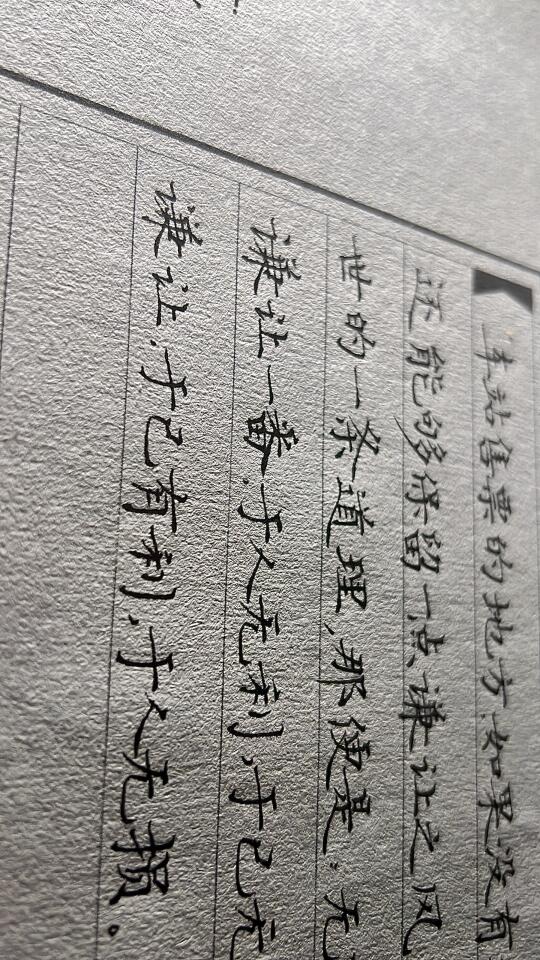 车站售票的地方,如果没有
还能够保留一点谦让之风
世的一条道理,那便是:无
谦让一番,于人无利,于己无
谦让,于己有利,于人无损。